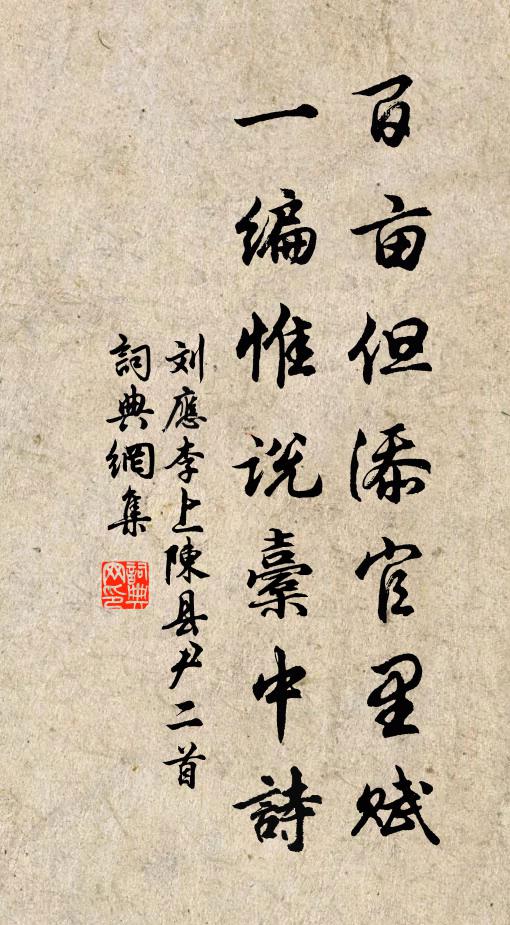 百亩但添官里赋
一编惟说橐中詩
刘應李上陳县尹二首
詞典網集
詞典网印